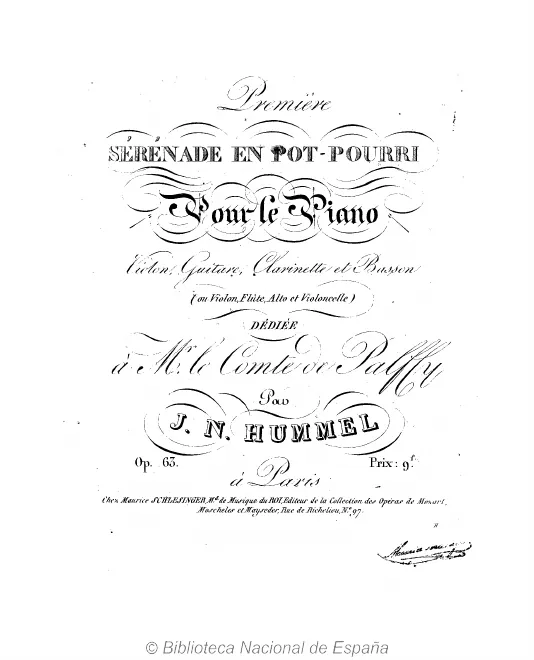 Première
SÉRÉNADE EN POT-POURRI
Pour le Piano
Violon, Guitare, Clarinette et Basson
(ou Violon, Flûte, Alto et Violoncelle)
DÉDIÉE
à Mr. le Comte de Palffy
Par
J. N. HUMMEL
Op. 63. Prix: 9f.
à Paris
Chez Maurice SCHLESINGER, Md. de Musique du ROI, Editeur de la Collection des Opéras de Mozart,
Moscheles et Mayseder, Rue de Richelieu, No. 97.
© Biblioteca Nacional de España